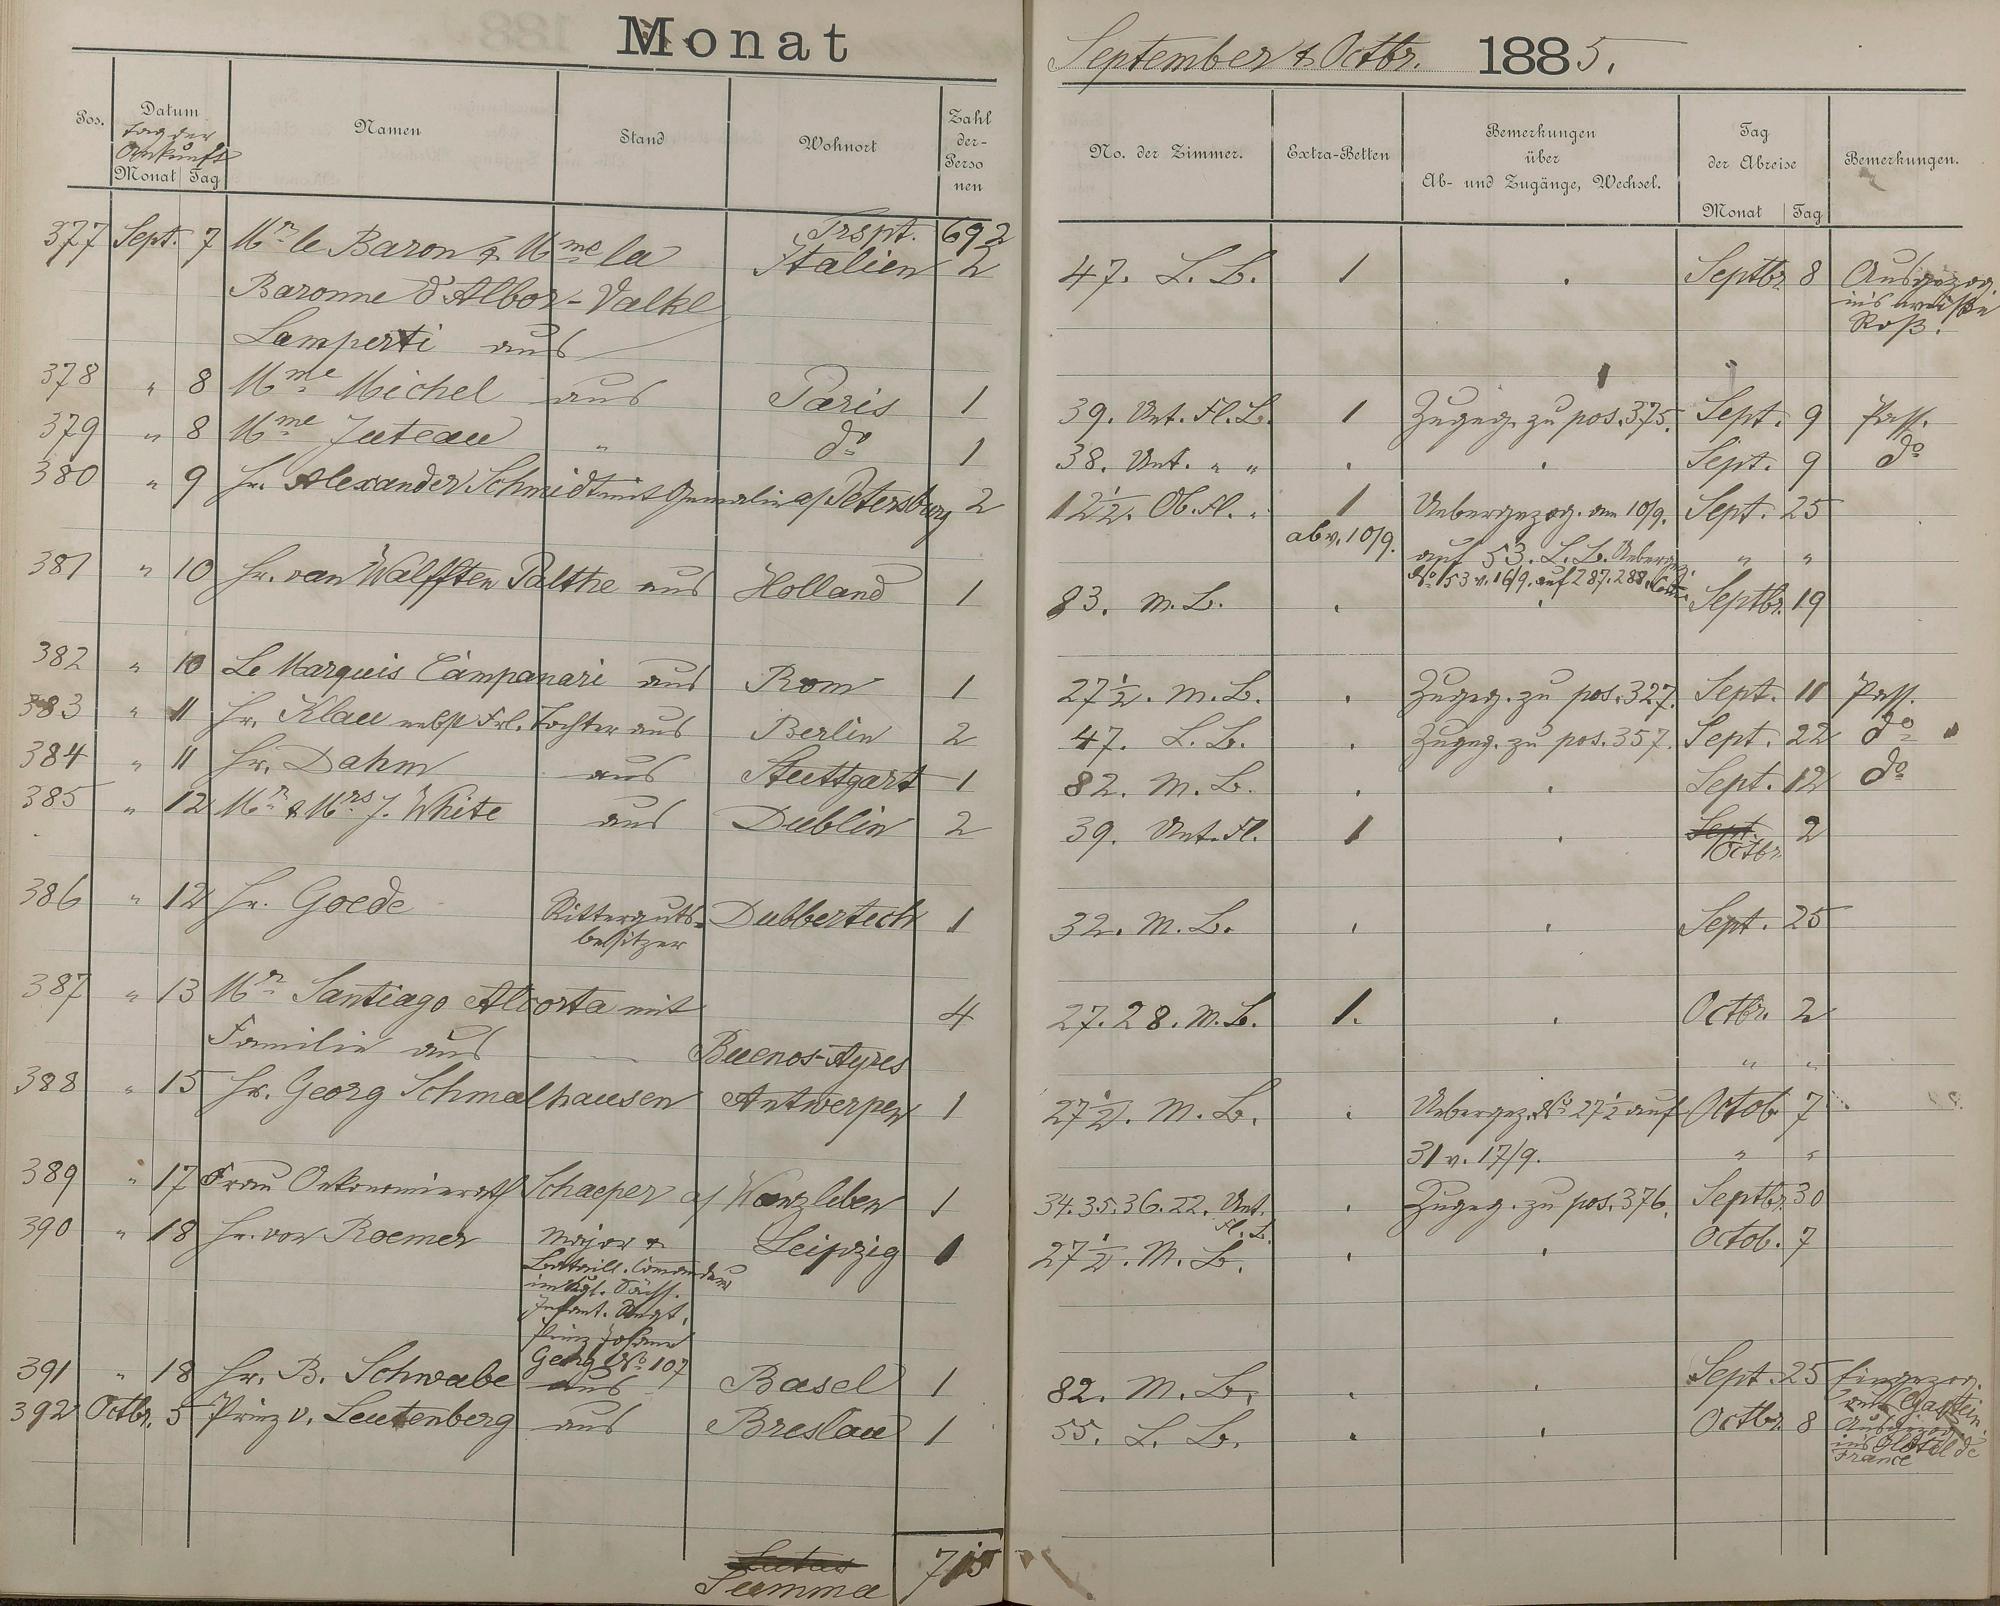 Monat September & Octbr. 1885.
Pos. Datum Tag der Ankunft Monat Tag Namen Stand Wohnort Zahl der Personen No. der Zimmer. Extra-Betten Bemerkungen über Ab- und Zugänge, Wechsel. Tag der Abreise Monat Tag Bemerkungen.
Trspt. 692
377 Sept. 7 Mr. le Baron & Mme la Italien 2 47. L. B. 1 . Septbr. 8 Ausgezog.
Baronne d'Albor-Valkl ins weiße
Lamperti aus Roß.
378 " 8 Mme Michel aus Paris 1 39. Unt. Fl. B. 1 Zugeg. zu pos. 375. Sept. 9 Pass.
379 " 8 Mme Juteau " do 1 38. Unt. " " . . Sept. 9 do
380 " 9 Hr. Alexander Schmidt mit Gemalin a/ Petersburg 2 12½. Ob. Fl. " 1 Uebergezog. am 10/9. Sept. 25
ab v. 10/9. auf 53. L. B. Ueberge. " "
No 153 v. 16/9. auf 287. 288.
381 " 10 Hr. van Walfften Palthe aus Holland 1 83. M. B. . . Septbr. 19
382 " 10 Le Marquis Campanari aus Rom 1 27½. M. B. . Zugeg. zu pos. 327. Sept. 11 Pass.
383 " 11 Hr. Klau nebst Frl. Tochter aus Berlin 2 47. L. B. . Zugeg. zu pos. 357. Sept. 22 do
384 " 11 Hr. Dahm aus Stuttgart 1 82. M. B. . . Sept. 12 do
385 " 12 Mr. & Mrs J. White aus Dublin 2 39. Unt. Fl. 1 . Sept. Octbr. 2
386 " 12 Hr. Goede Ritterguts- Dubbertech 1 32. M. B. . . Sept. 25
besitzer
387 " 13 Mr. Santiago Alcorta mit 4 27. 28. M. B. 1. . Octbr. 2
Familie aus — Buenos-Ayres " "
388 " 15 Hr. Georg Schmalhausen Antwerpen 1 27½. M. B. . Uebergez. No 27½ auf Octob. 7
31 v. 17/9. " "
389 " 17 Frau Oekonomierath Schaeper a/ Wanzleben 1 34. 35. 36. 22. Unt. Fl. B. . Zugeg. zu pos. 376. Septbr. 30
390 " 18 Hr. von Roemer Major & Leipzig 1 27½. M. B. . . Octob. 7
Bataill. Comandeur
im Kgl. Sächs.
Infant. Regt.
Prinz Johann
Georg No 107
391 " 18 Hr. B. Schwabe aus Basel 1 82. M. B. . . Sept. 25 Eingezog.
aus Gastein.
392 Octbr. 5 Prinz v. Leutenberg aus Breslau 1 55. L. B. . . Octbr. 8 Ausgezog.
ins Hôtel de
France
Latus
Summa 715